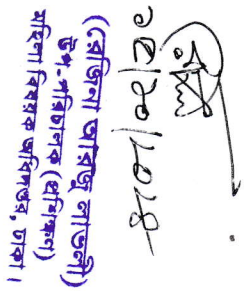 (রেজিনা আরজু লাভলী)
উপ-পরিচালক (প্রশিক্ষণ)
মহিলা বিষয়ক অধিদপ্তর, ঢাকা।